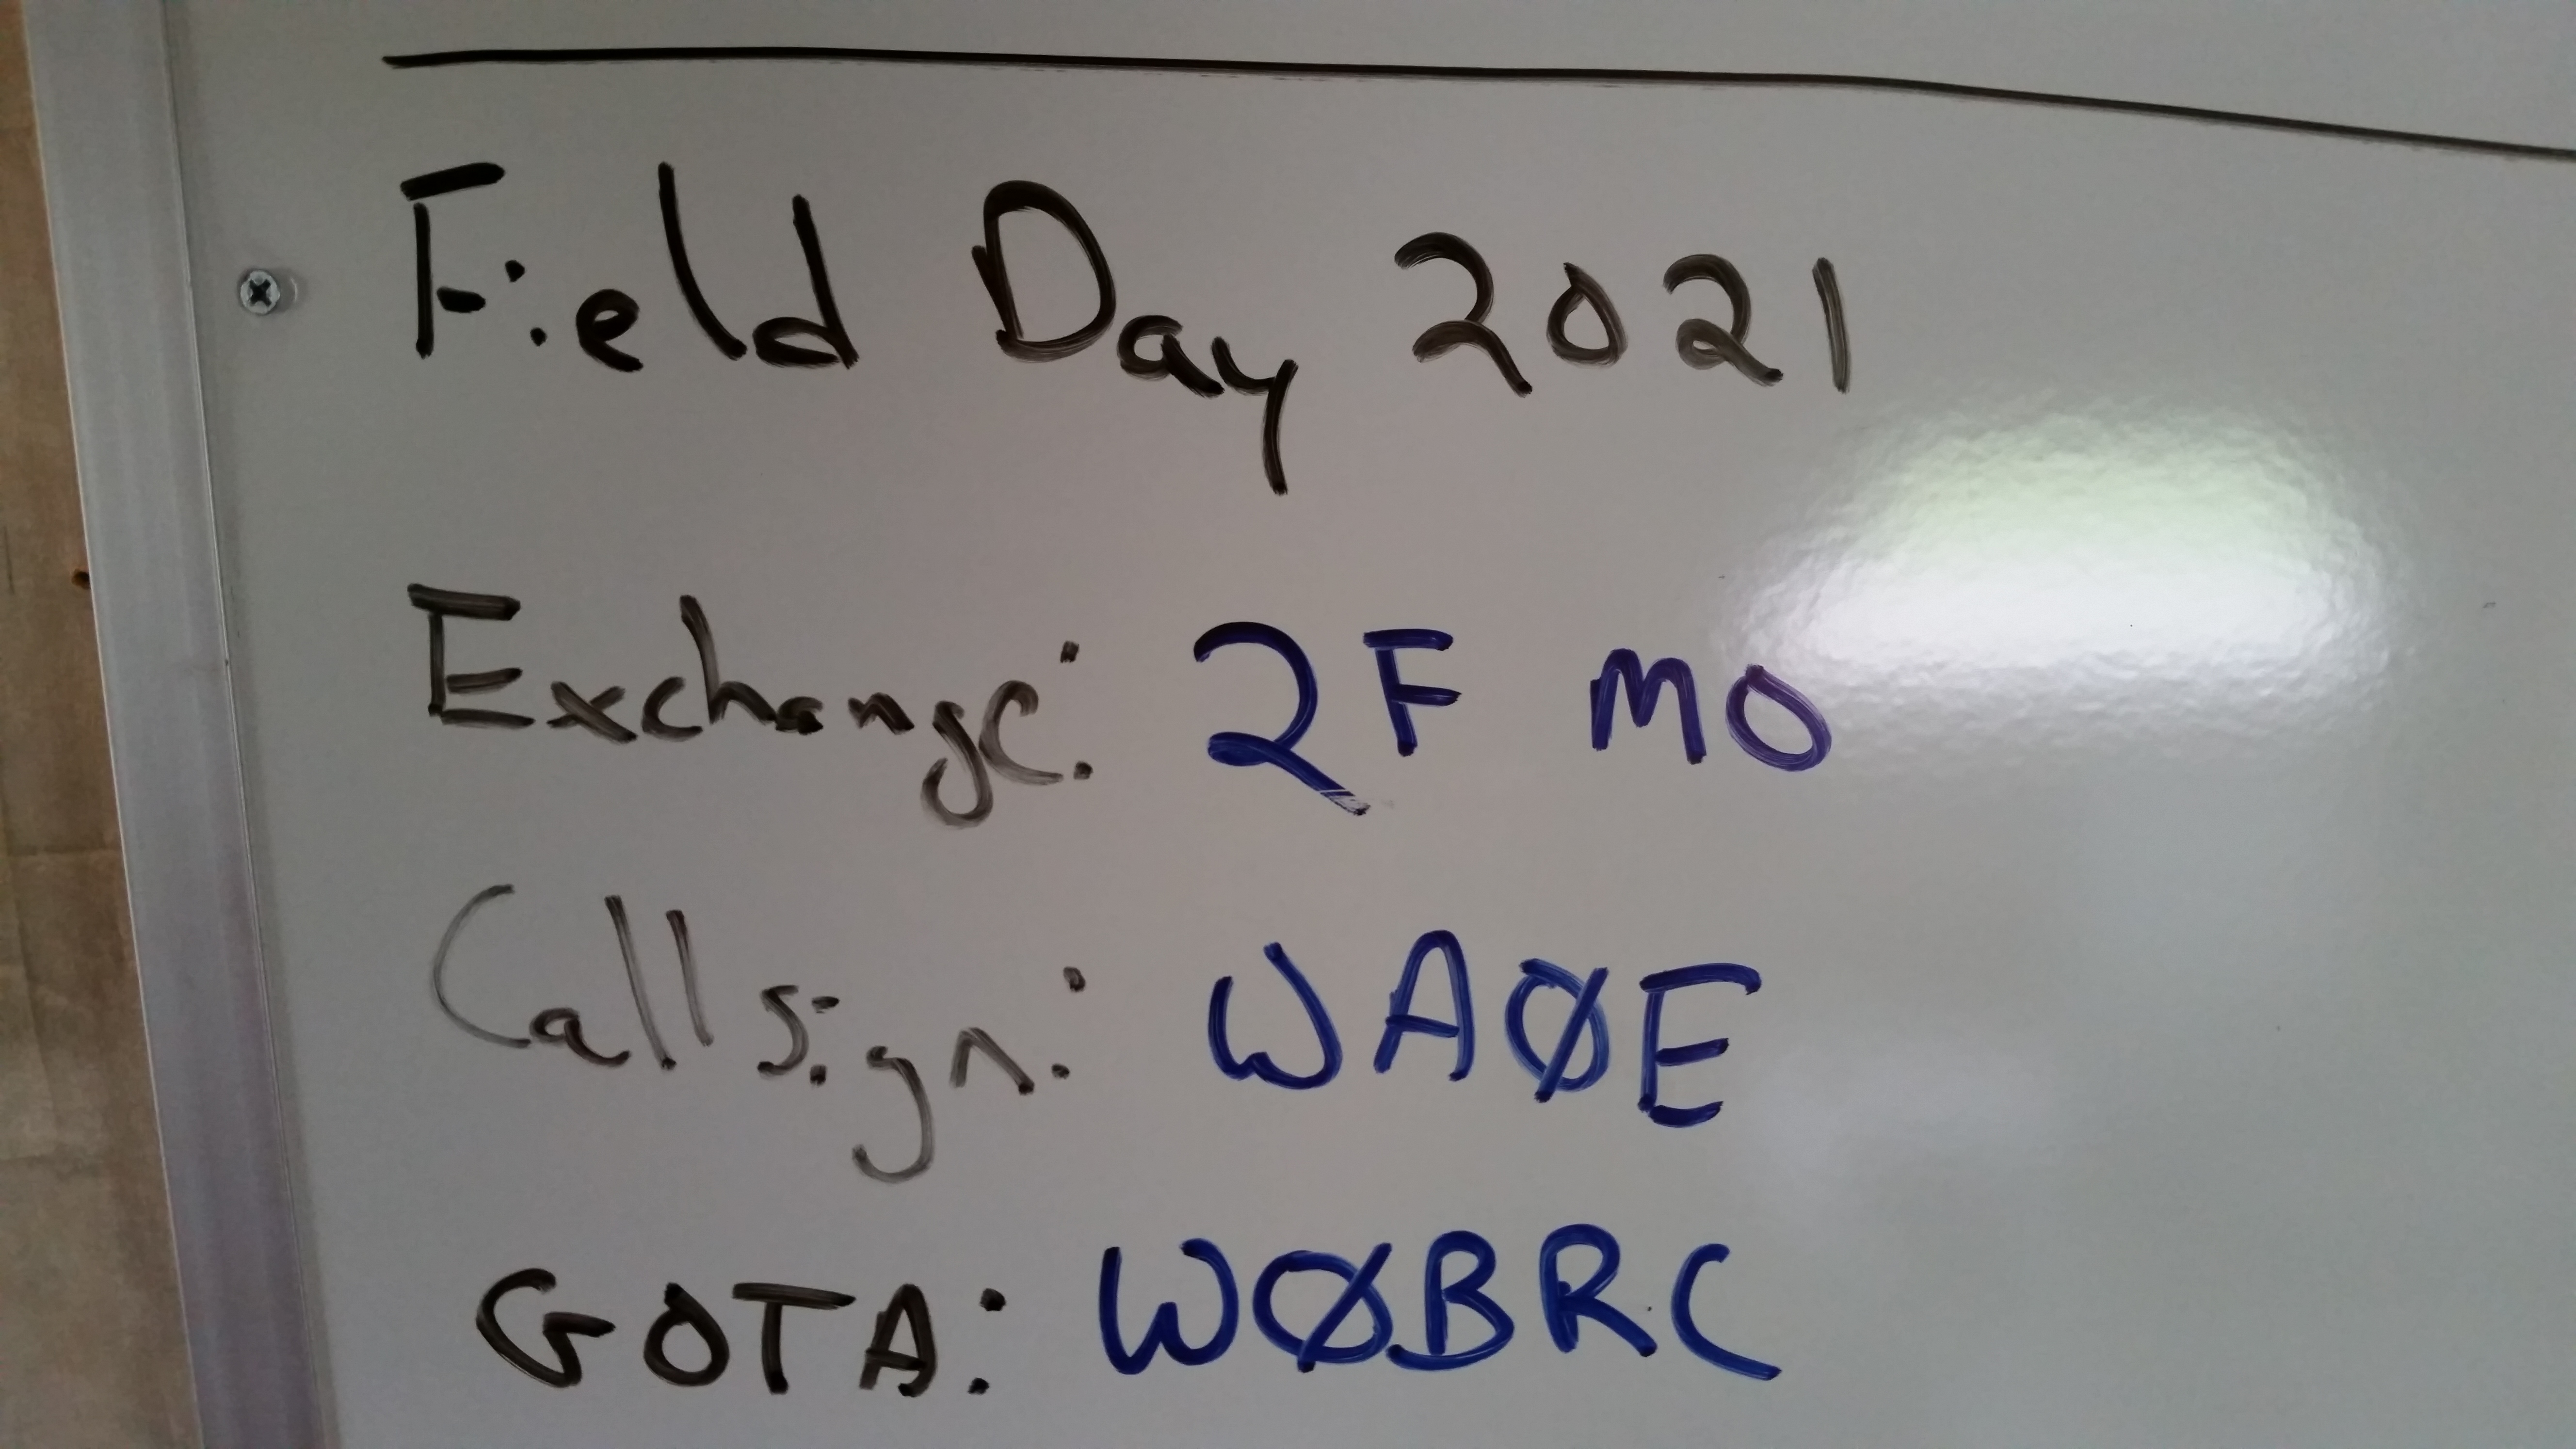 Field Day 2021
Exchange: 2F MO
Callsign: WAØE
GOTA: WØBRC